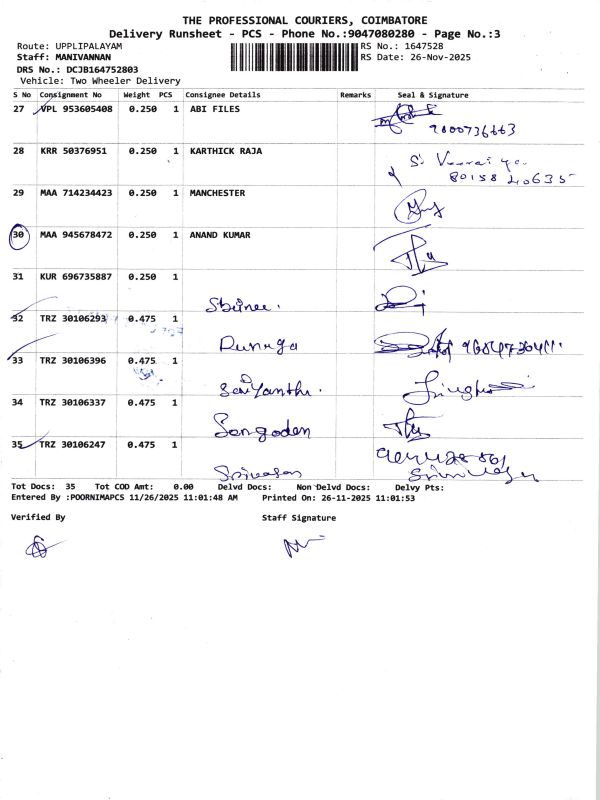 THE PROFESSIONAL COURIERS, COIMBATORE
Delivery Runsheet - PCS - Phone No.:9047080280 - Page No.:3
Route: UPPLIPALAYAM RS No.: 1647528
Staff: MANIVANNAN RS Date: 26-Nov-2025
DRS No.: DCJB164752803
Vehicle: Two Wheeler Delivery
S No Consignment No Weight PCS Consignee Details Remarks Seal & Signature
27 VPL 953605408 0.250 1 ABI FILES
9800736663
28 KRR 50376951 0.250 1 KARTHICK RAJA
PCS
80158 40635
29 MAA 714234423 0.250 1 MANCHESTER
30 MAA 945678472 0.250 1 ANAND KUMAR
31 KUR 696735887 0.250 1
32 TRZ 30106293 0.475 1
33 TRZ 30106396 0.475 1
34 TRZ 30106337 0.475 1
Sengoden
35 TRZ 30106247 0.475 1
Srinivasan
Tot Docs: 35 Tot COD Amt: 0.00 Delvd Docs: Non Delvd Docs: Delvy Pts:
Entered By :POORNIMAPCS 11/26/2025 11:01:48 AM Printed On: 26-11-2025 11:01:53
Verified By Staff Signature